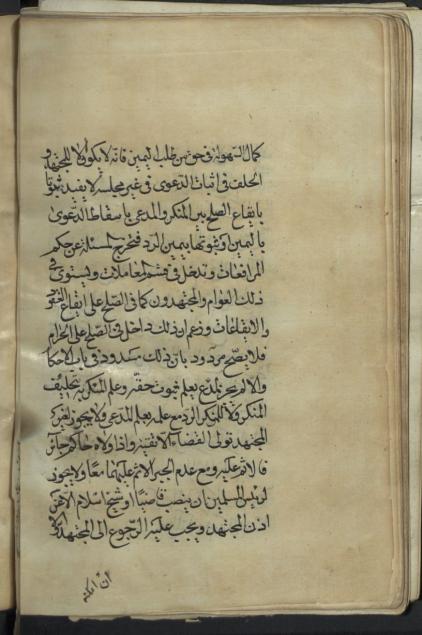 كمال السهولة في حق من طلب اليمين فانه لا يكون الا للمجتهد و
الحلف في اثبات الدعوى في غير مجلسه لا يفيد ثبوتا
بايقاع الصلح بين المنكر والمدعى باسقاط الدعوى
باليمين او ثبوتها بيمين الرد فتخرج المسئلة عن حكم
المرافعات وتدخل في قسم المعاملات ويستوى في
ذلك العوام والمجتهدون كما في الصلح على ايقاع العقود
والايقاعات وزعم ان ذلك داخل في الصلح على الحرام
فلا يصح مردود بان ذلك مسدود في باب الاحكام
والا لم يجز لمدع يعلم ثبوت حقه وعلم المنكر به تحليف
المنكر ولا للمنكر الرد مع علمه بعلم المدعى ولا يجوز لغير
المجتهد تولى القضاء الا تقية واذا ولاه حاكم جائر
فالاثم عليه ومع عدم الجبر الاثم عليهما معا ولا يجوز
لرئيس المسلمين ان ينصب قاضيا او شيخ اسلام الا عن
اذن المجتهد ويجب عليه الرجوع الى المجتهد
ان امكنه